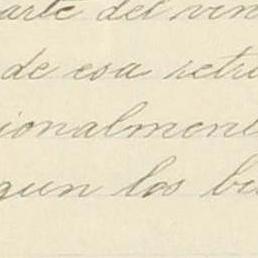 arte del vin
de esa retri
ionalmen
gun los be